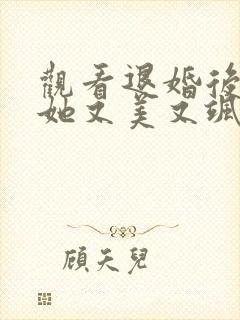 觀看退婚後
她又美又颯
顧天兒